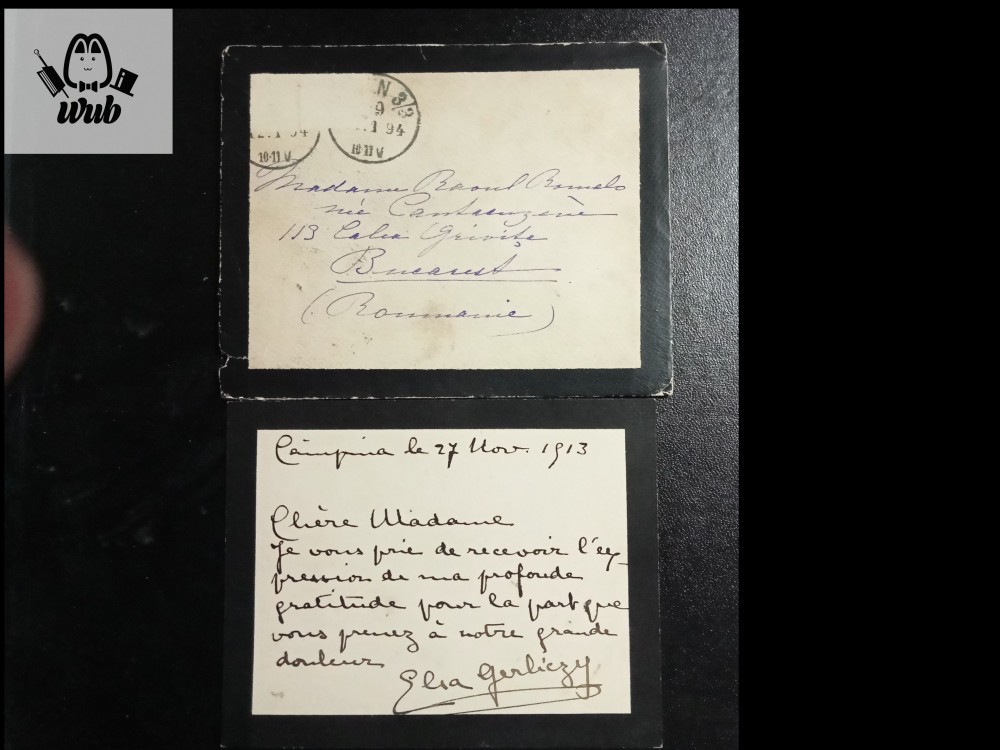 wub
N 3/3
9
1 94
10-11 V
10-11 V
Madame Raoul Romalo
née Cantacuzène
113 Calea Griviţa
Bucarest
(Roumanie)
Câmpina le 27 Nov. 1913
Chère Madame
Je vous prie de recevoir l'ex-
pression de ma profonde
gratitude pour la part que
vous prenez à notre grande
douleur
Elsa Gerliczy